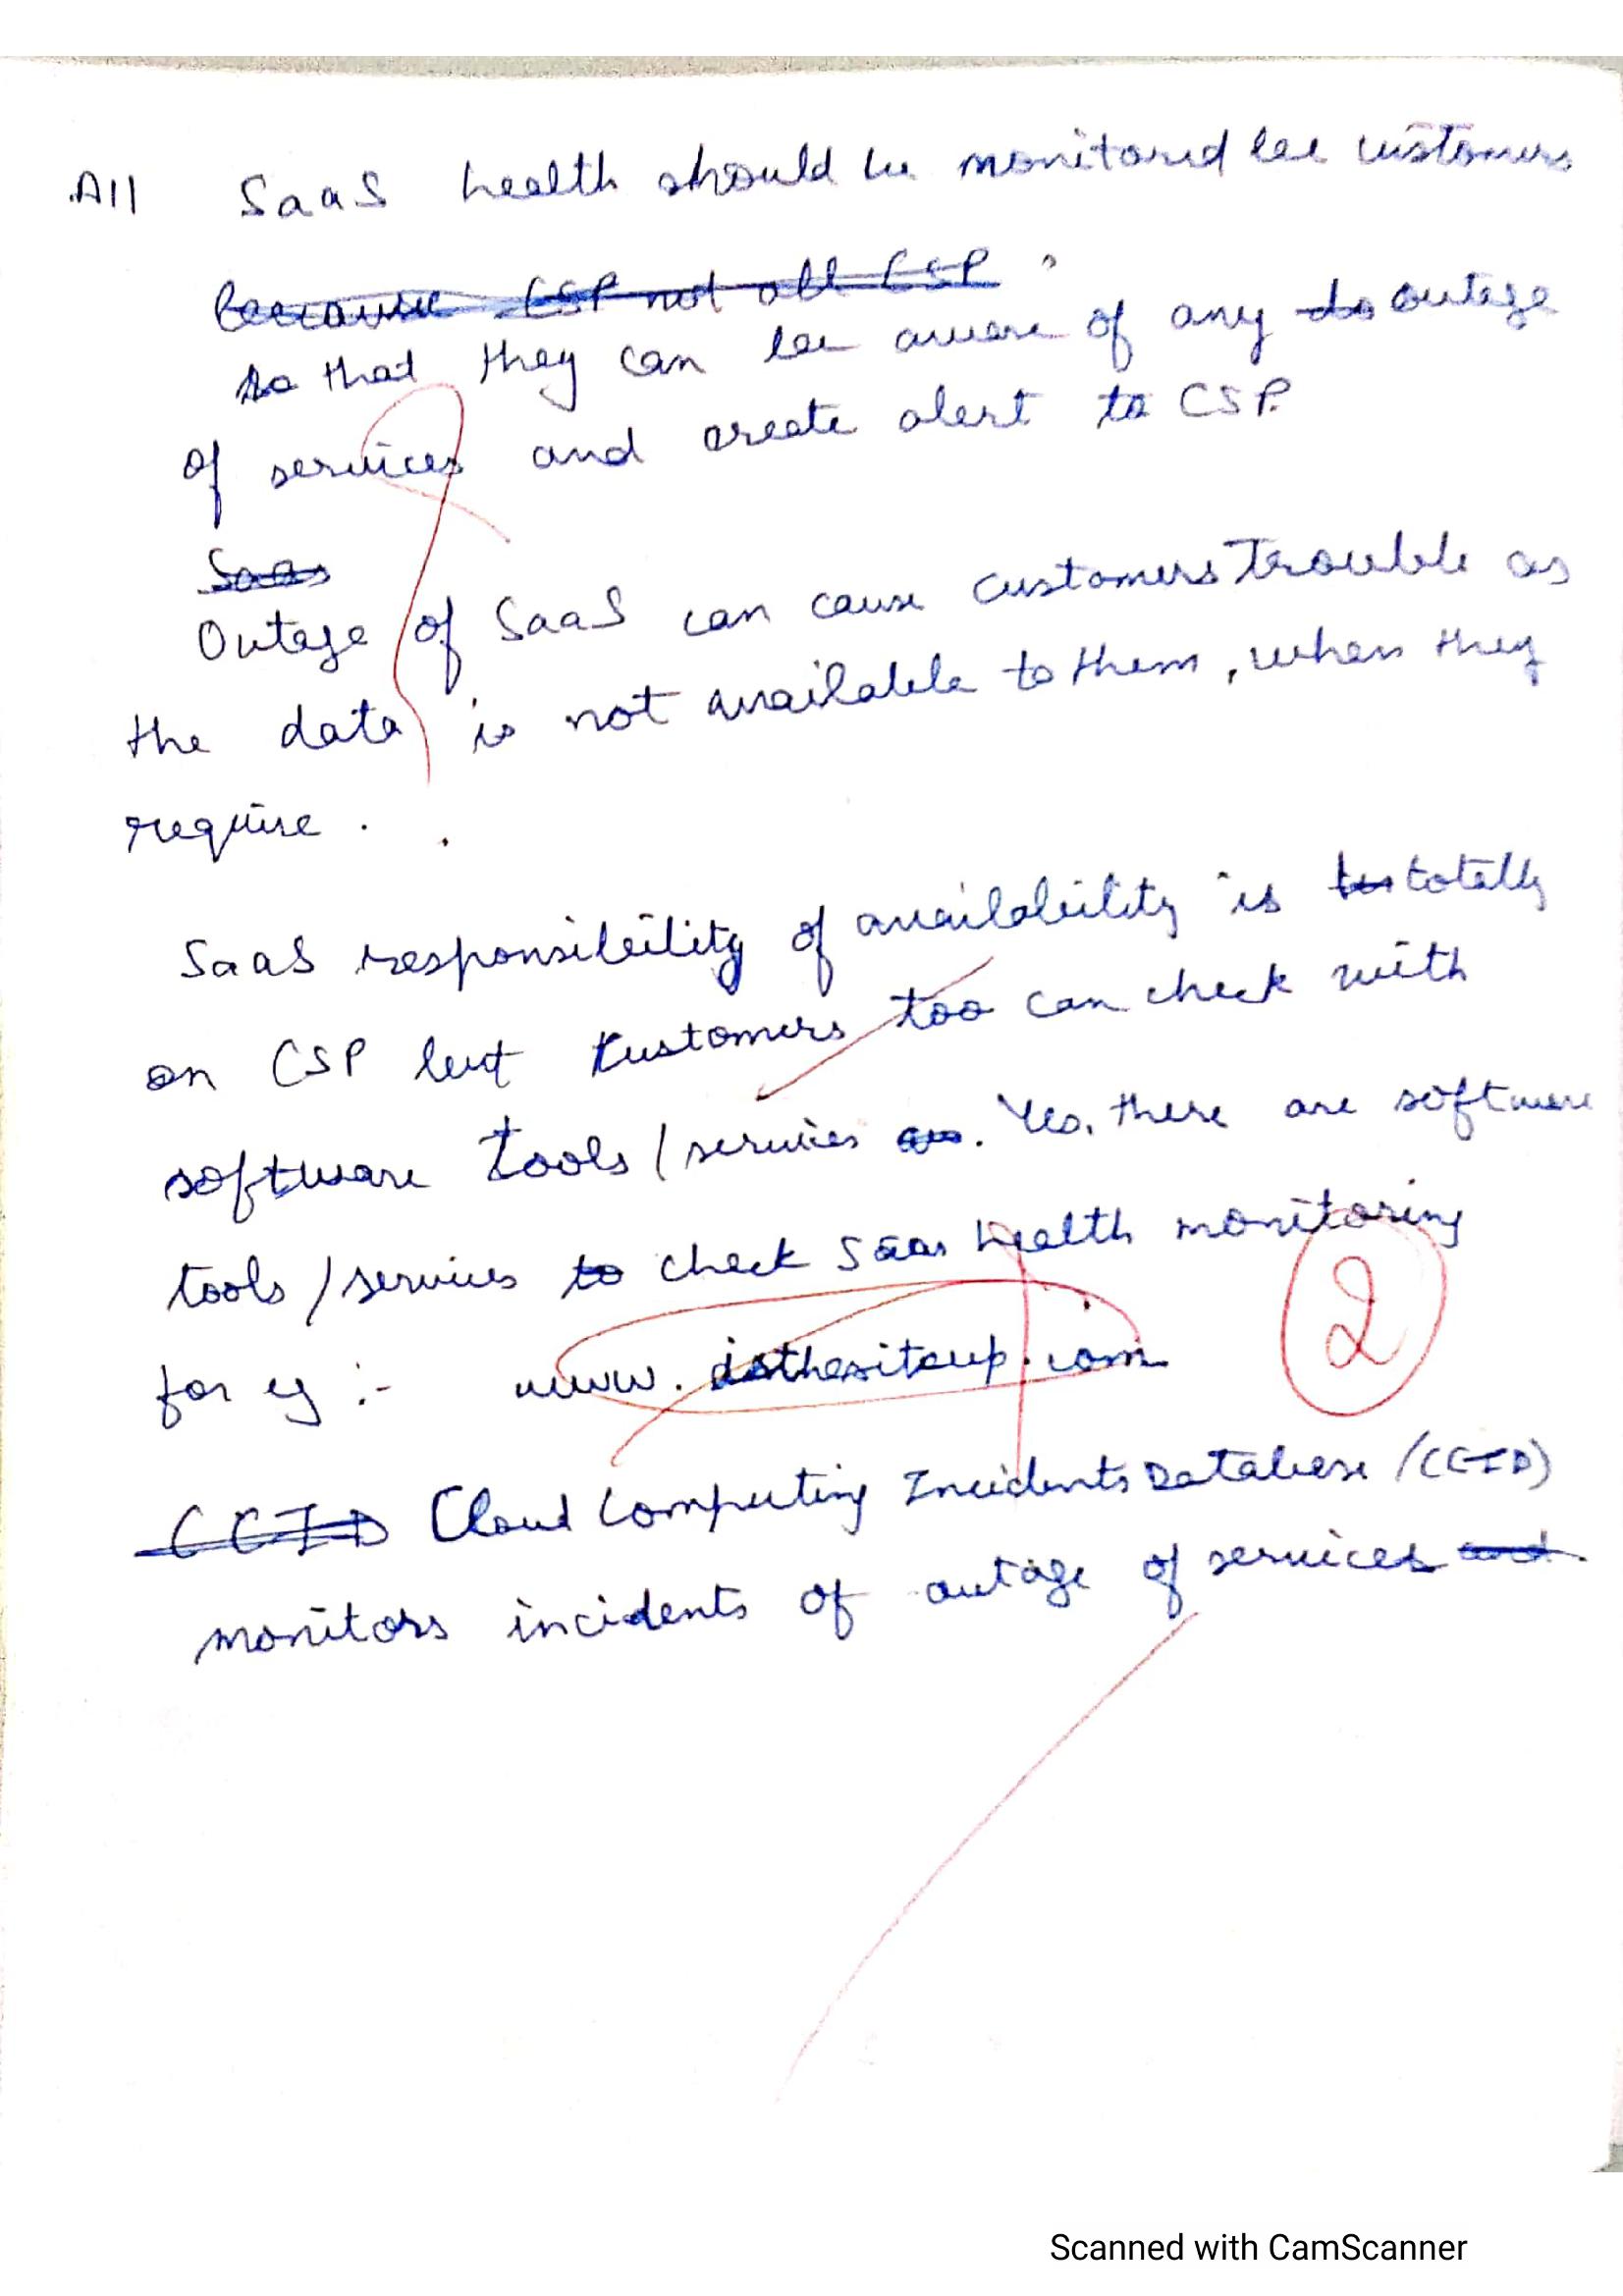 A11 SaaS health should be monitored be customers
because CSP not all CSP
so that they can be aware of any do outage
of services and create alert to CSP.
SaaS
Outage of SaaS can cause customers Trouble as
the data is not available to them, when they
require.
SaaS responsibility of availability is totally
on CSP but customers too can check with
software tools/services. Yes, there are software
tools/services to check SaaS health monitoring
for eg :- www.isthesiteup.com
2
CCID Cloud Computing Incidents Database (CCID)
monitors incidents of outage of services and
Scanned with CamScanner